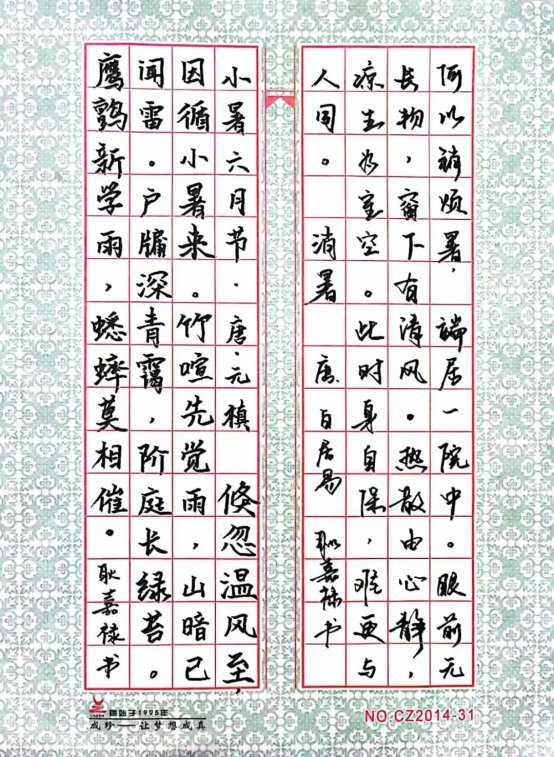 何以销烦暑，端居一院中。眼前无
长物，窗下有清风。热散由心静，
凉生为室空。此时身自保，难更与
人同。 消暑 唐 白居易 耿嘉禄书
小暑六月节·唐·元稹 倏忽温风至，
因循小暑来。竹喧先觉雨，山暗已
闻雷。户牖深青霭，阶庭长绿苔。
鹰鹯新学雨，蟋蟀莫相催。耿嘉禄书
始于1995年
成珍——让梦想成真
NO.CZ2014-31